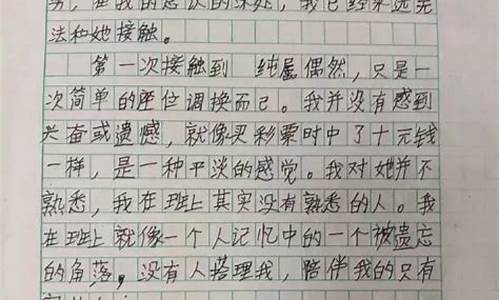 我的意识的深处，我已经永远无
法和她接触。
第一次接触到 纯属偶然，只是一
次简单的座位调换而已。我并没有感到
兴奋或遗憾，就像买彩票时中了十元钱
一样，是一种平淡的感觉。我对她并不
熟悉，我在班上其实没有熟悉的人。我
在班上就像一个人记忆中的一个被遗忘
的角落。没有人搭理我，陪伴我的只有